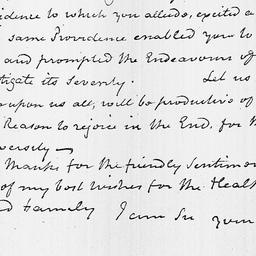 idence to which you allude, excited a
same Providence enabled you to
and prompted the Endeavours of
tigate its Severity. Let us
upon us all, will be productive of
Reason to rejoice in the End, for th
versity —
Thanks for the friendly Sentimen
of my best wishes for the Healt
d Family I am Sir your